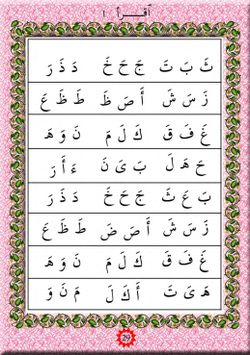 أقرأ ١
ثَ بَ تَ جَ حَ خَ دَ ذَ رَ
زَ سَ شَ أَ صَ ظَ طَ ظَ عَ
غَ فَ قَ كَ لَ مَ نَ وَ هَ
حَ هَ لَ بَ ىَ نَ ءَ أَ رَ
بَ عَ ثَ جَ حَ خَ دَ ذَ رَ
زَ سَ شَ أَ صَ ضَ طَ ظَ عَ
غَ فَ قَ كَ لَ مَ نَ وَ هَ
هَ ىَ تَ أَ كَ لَ مَ نَ وَ
29